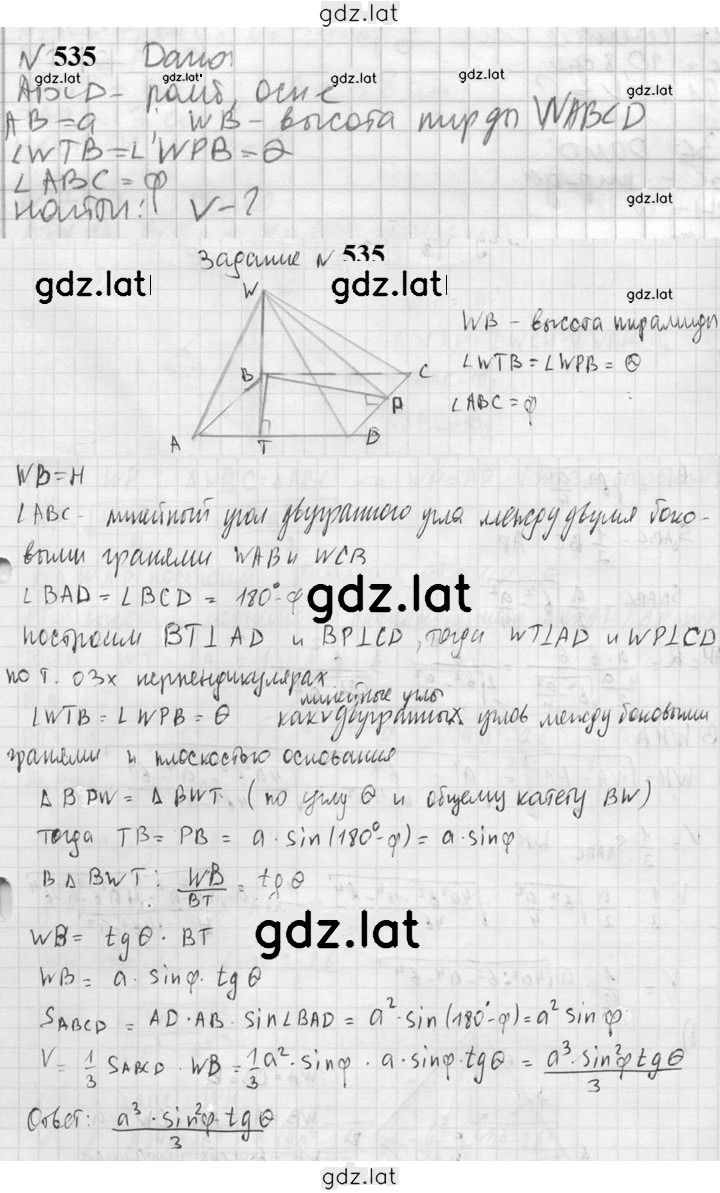 gdz.lat
N 535 Дано:
gdz.lat gdz.lat gdz.lat
ABCD - ромб, осн-е
AB = a, WB - высота пир-ды WABCD
∠WTB = ∠WPB = θ
∠ABC = φ
gdz.lat
Найти: V - ?
Задание N 535
gdz.lat gdz.lat gdz.lat
W
B
C
P
A
T
D
WB - высота пирамиды
∠WTB = ∠WPB = θ
∠ABC = φ
WB = H
∠ABC - линейный угол двугранного угла между двумя боко-
выми гранями WAB и WCB
∠BAD = ∠BCD = 180° - φ
gdz.lat
построим BT⊥AD и BP⊥CD, тогда WT⊥AD и WP⊥CD
по т. о 3х перпендикулярах
линейные углы
∠WTB = ∠WPB = θ как двугранных углов между боковыми
гранями и плоскостью основания
Δ BPW = Δ BWT (по углу θ и общему катету BW)
тогда TB = PB = a · sin(180° - φ) = a · sinφ
В Δ BWT: WB/BT = tgθ
WB = tgθ · BT
gdz.lat
WB = a · sinφ · tgθ
S ABCD = AD · AB · sin∠BAD = a² · sin(180° - φ) = a² sinφ
V = 1/3 S ABCD · WB = 1/3 a² · sinφ · a · sinφ · tgθ = a³ · sin²φ tgθ / 3
Ответ: a³ · sin²φ · tgθ / 3
gdz.lat